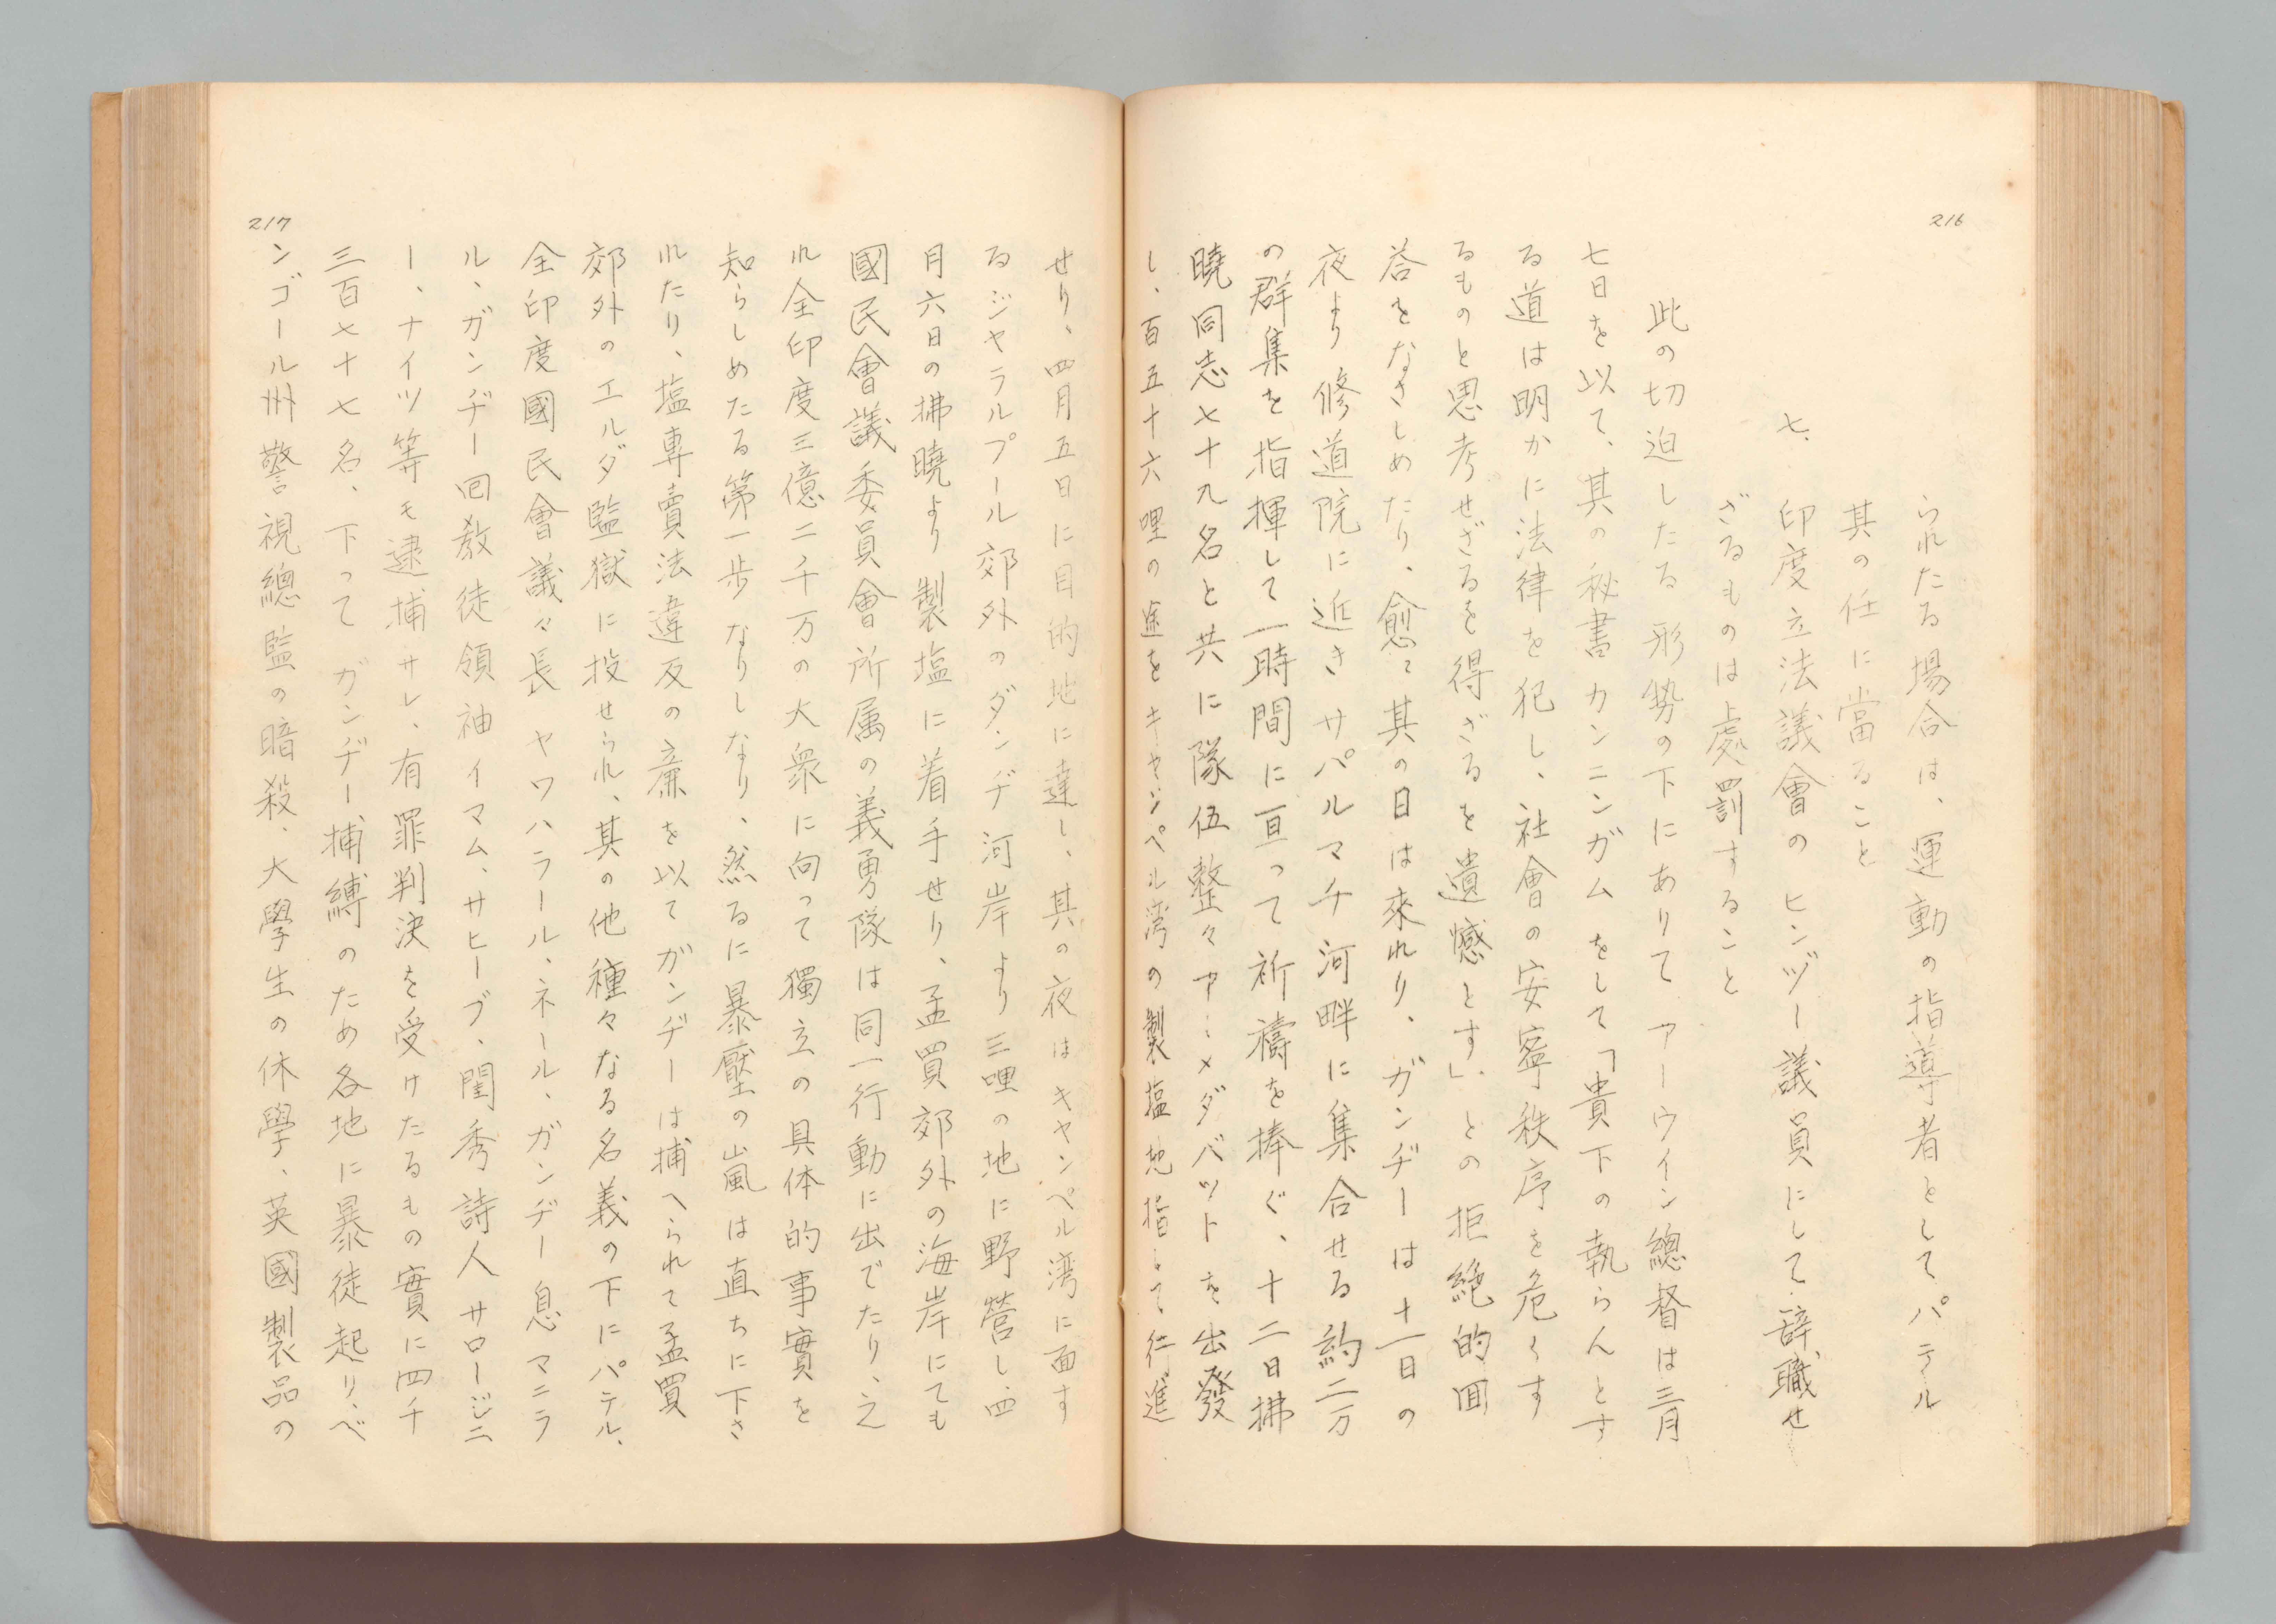 216
られたる場合は、運動の指導者としてパテル
其の任に當ること
七、印度立法議會のヒンヅー議員にして辞職せ
ざるものは處罰すること
此の切迫したる形勢の下にありてアーウイン總督は三月
七日を以て、其の秘書カンニンガムをして「貴下の執らんとす
る道は明かに法律を犯し、社會の安寧秩序を危くす
るものと思考せざるを得ざるを遺憾とす」との拒絶的囬
答をなさしめたり、愈々其の日は來れり、ガンヂーは十一日の
夜より修道院に近きサパルマチ河畔に集合せる約二万
の群集を指揮して一時間に亘って祈禱を捧ぐ、十二日拂
曉同志七十九名と共に隊伍整々アーメダバットを出發
し、百五十六哩の途をキャンペル湾の製塩地指して行進
217
せり、四月五日に目的地に達し、其の夜はキャンペル湾に面す
るジャラルプール郊外のダンヂ河岸より三哩の地に野營し、四
月六日の拂曉より製塩に着手せり、孟買郊外の海岸にても
國民會議委員會所属の義勇隊は同一行動に出でたり、之
れ全印度三億二千万の大衆に向って獨立の具体的事實を
知らしめたる第一歩なりしなり、然るに暴壓の嵐は直ちに下さ
れたり、塩専賣法違反の廉を以てガンヂーは捕へられて孟買
郊外のエルダ監獄に投せられ、其の他種々なる名義の下にパテル、
全印度國民會議々長ヤワハラール、ネール、ガンヂー息マニラ
ル、ガンヂー回教徒領袖イマム、サヒーブ、閨秀詩人サロージニ
ー、ナイツ等モ逮捕サレ、有罪判決を受けたるもの實に四千
三百七十七名、下ってガンヂー捕縛のため各地に暴徒起り、ベ
ンゴール州警視總監の暗殺、大學生の休學、英國製品の